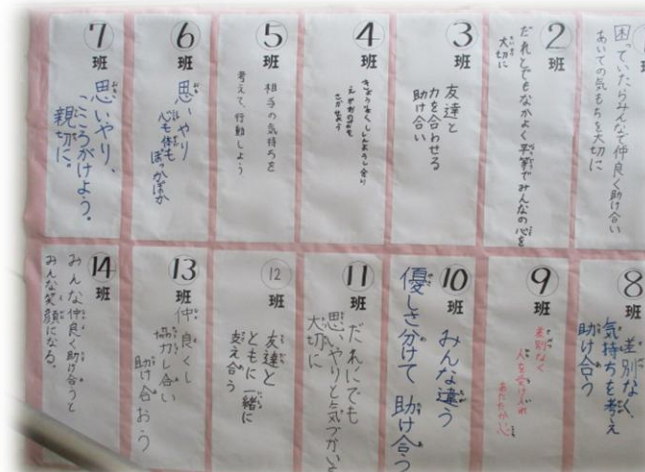 困っていたらみんなで仲良く助け合い
あいての気もちを大切に
2班
だれとでもなかよく平等でみんなの心を
大切に
3班
友達と
力を合わせる
助け合い
4班
5班
相手の気持ちを
考えて、行動しよう
6班
思いやり
心も体も
ぽっかぽか
7班
思いやり、
こころがけよう。
親切に。
8班
差別なく、
気持ちを考え
助け合う
9班
差別なく
人を受け入れ
あたたか心
10班
みんな違う
優しさ分けて 助け合う
11班
だれにでも
思いやりと気づかいを
大切に
12班
友達と
ともに一緒に
支え合う
13班
仲良くし
協力し合い
助け合おう
14班
みんな仲良く助け合うと
みんな笑顔になる。